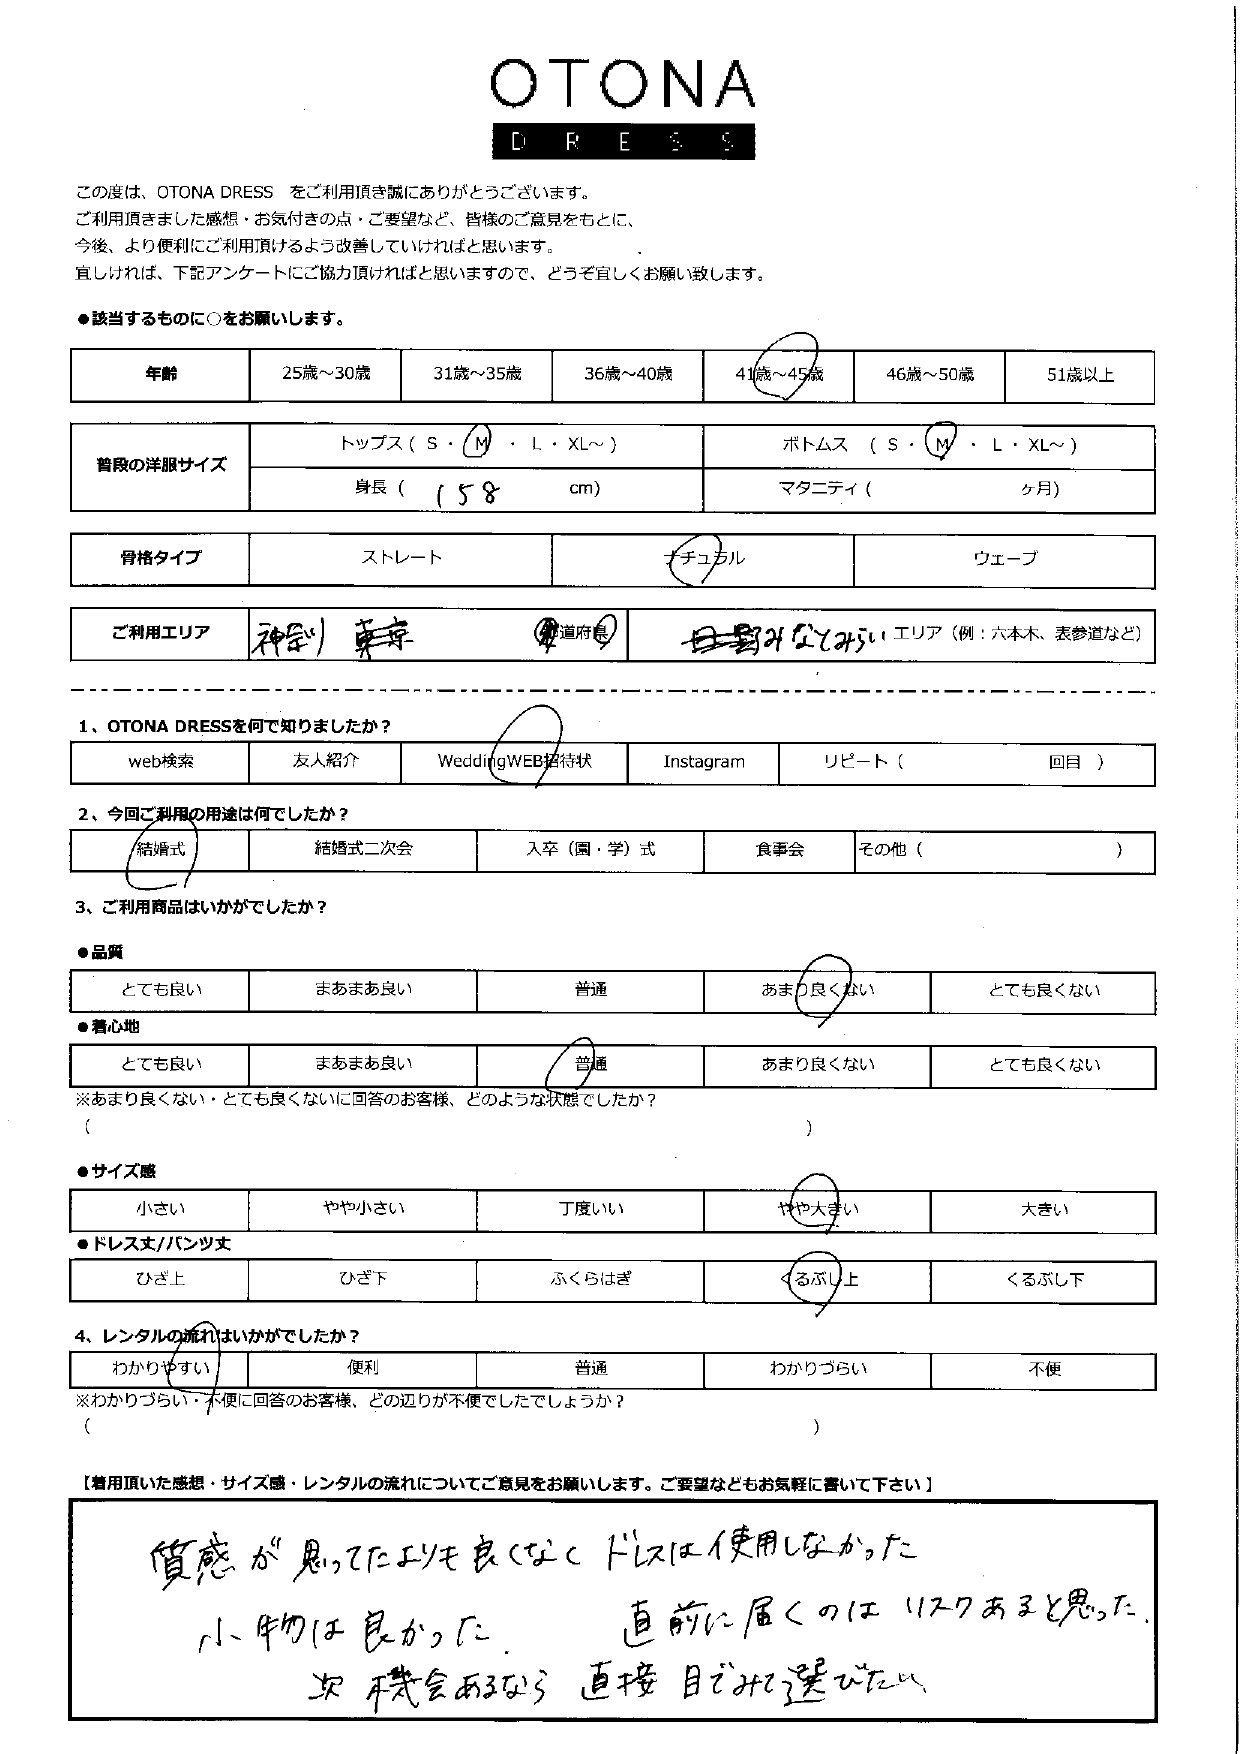 OTONA
DRESS
この度は、OTONA DRESS をご利用頂き誠にありがとうございます。
ご利用頂きました感想・お気付きの点・ご要望など、皆様のご意見をもとに、
今後、より便利にご利用頂けるよう改善していければと思います。
宜しければ、下記アンケートにご協力頂ければと思いますので、どうぞ宜しくお願い致します。
●該当するものに○をお願いします。
年齢 25歳～30歳 31歳～35歳 36歳～40歳 41歳～45歳 46歳～50歳 51歳以上
普段の洋服サイズ トップス ( S ・ M ・ L ・ XL～ ) ボトムス ( S ・ M ・ L ・ XL～ )
身長 ( 158 cm) マタニティ ( ヶ月)
骨格タイプ ストレート ナチュラル ウェーブ
ご利用エリア 神奈川 東京 道府県 日野 みなとみらい エリア（例：六本木、表参道など）
1、OTONA DRESSを何で知りましたか？
web検索 友人紹介 WeddingWEB招待状 Instagram リピート（ 回目 ）
2、今回ご利用の用途は何でしたか？
結婚式 結婚式二次会 入卒（園・学）式 食事会 その他（ ）
3、ご利用商品はいかがでしたか？
●品質
とても良い まあまあ良い 普通 あまり良くない とても良くない
●着心地
とても良い まあまあ良い 普通 あまり良くない とても良くない
※あまり良くない・とても良くないに回答のお客様、どのような状態でしたか？
( )
●サイズ感
小さい やや小さい 丁度いい やや大きい 大きい
●ドレス丈/パンツ丈
ひざ上 ひざ下 ふくらはぎ くるぶし上 くるぶし下
4、レンタルの流れはいかがでしたか？
わかりやすい 便利 普通 わかりづらい 不便
※わかりづらい・不便に回答のお客様、どの辺りが不便でしたでしょうか？
( )
【着用頂いた感想・サイズ感・レンタルの流れについてご意見をお願いします。ご要望などもお気軽に書いて下さい】
質感が思ってたよりも良くなく ドレスは使用しなかった
小物は良かった. 直前に届くのは リスクあると思った.
次 機会あるなら 直接 目でみて選びたい